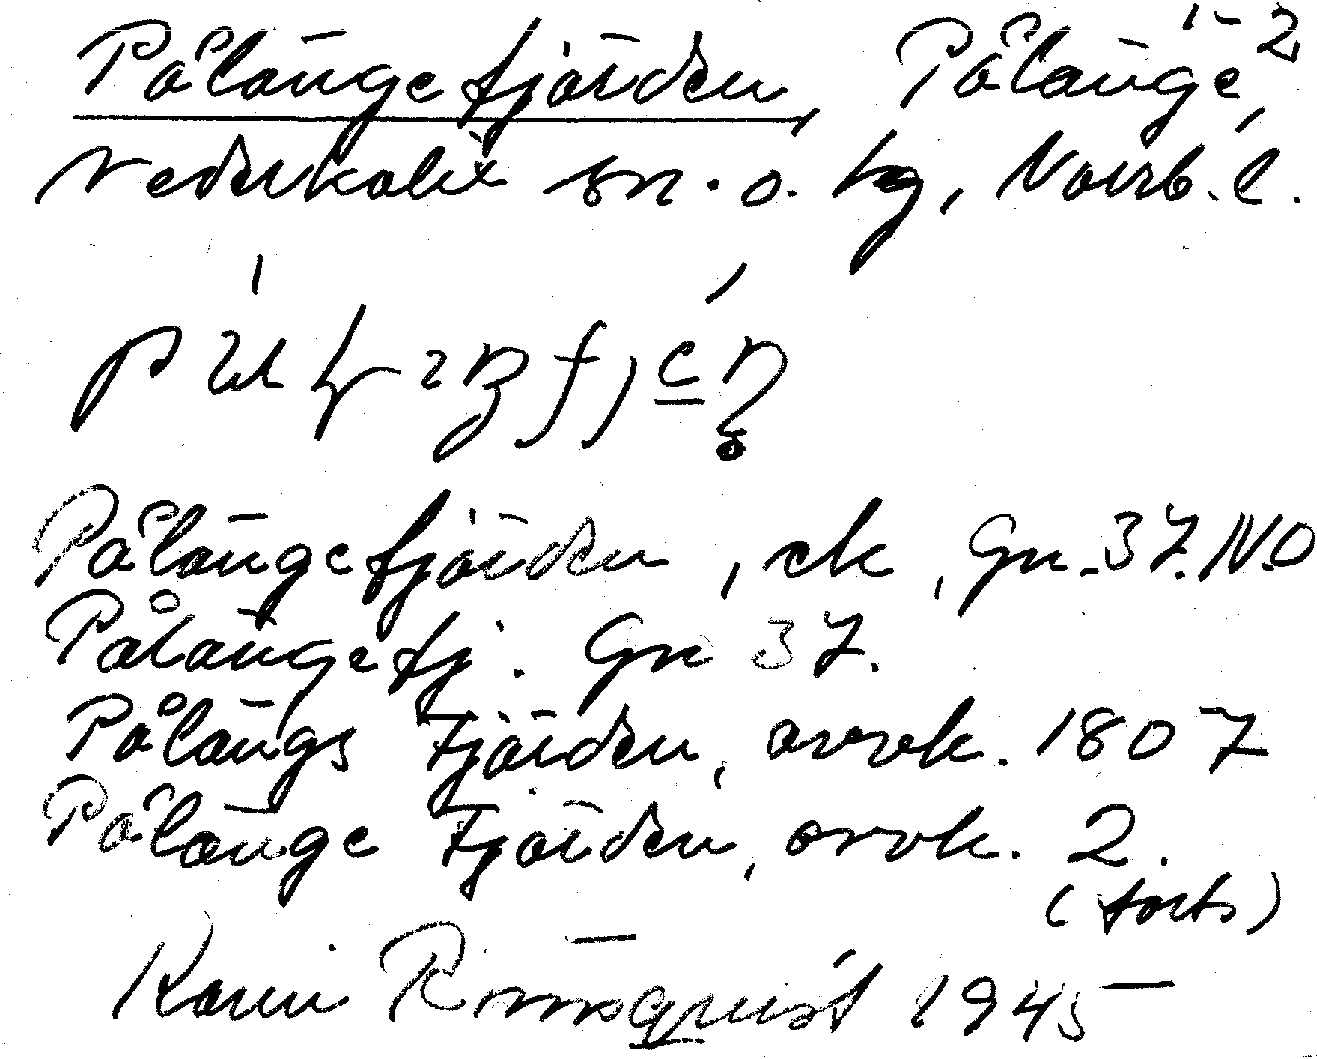 Pålängefjärden, Pålänge, 1-2
Nederkalix sn. o. tg, Norrb. l.
Pålängefjärden, ek, Gn. 37. N.O
Pålängefj. Gn 37.
Pålängs Fjärden, avvk. 1807
Pålänge Fjärden, avvk. 2.
(forts)
Karin Rönnquist 1945